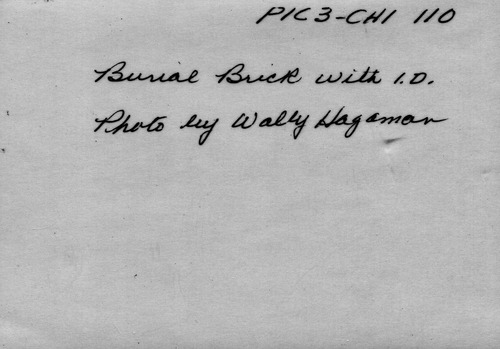 PIC3-CHI 110
Burial Brick with I.D.
Photo by Wally Hagaman